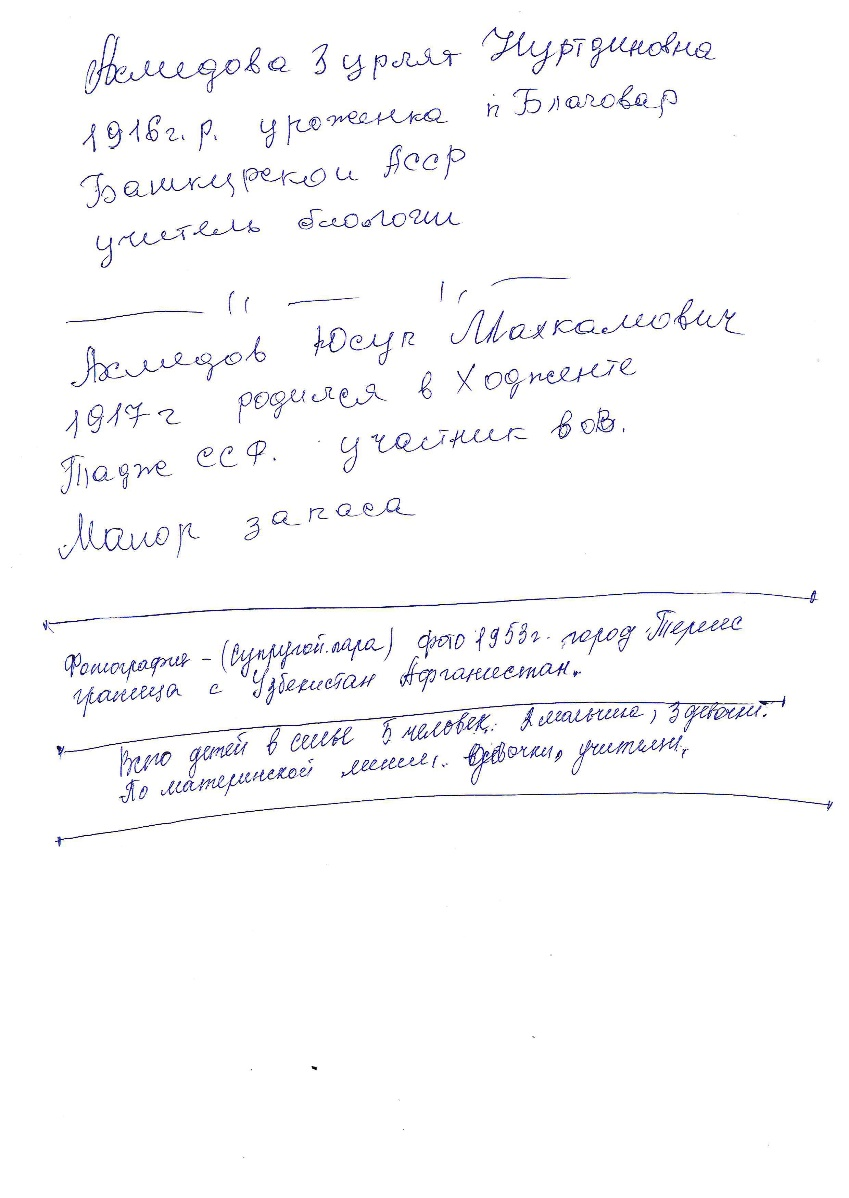 Ахмедова Зурлят Нуртдиновна
1916г.р. уроженка п Благовар
Башкирской АССР
учитель биологии
Ахмедов Юсуп Махкамович
1917г родился в Ходженте
Тадж ССР. участник вов.
Майор запаса
Фотография - (Супругой.пара) фото 1953г. город Термес
граница с Узбекистан Афганистан.
Всего детей в семье 5 человек. 2 мальчика, 3 девочки.
По материнской линии. девочки, учителя,